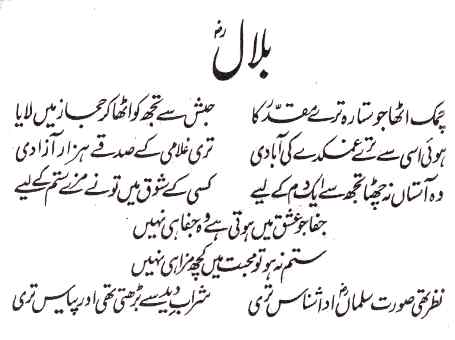 بلالؓ
چمک اٹھا جو ستارہ ترے مقدّر کا حبش سے تجھ کو اٹھا کر حجاز میں لایا
ہوئی اسی سے ترے غمکدے کی آبادی تری غلامی کے صدقے ہزار آزادی
وہ آستاں نہ چھٹا تجھ سے ایک دم کے لیے کسی کے شوق میں تو نے مزے ستم کے لیے
جفا جو عشق میں ہوتی ہے وہ جفا ہی نہیں
ستم نہ ہو تو محبت میں کچھ مزا ہی نہیں
نظر تھی صورتِ سلماںؓ ادا شناس تری شرابِ دید سے بڑھتی تھی اور پیاس تری